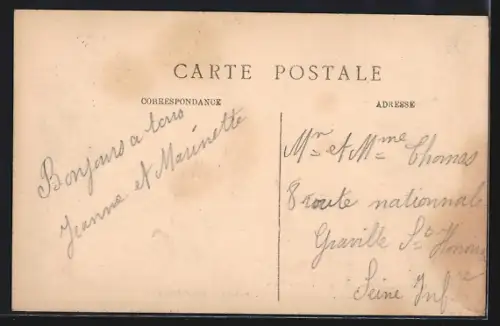 CARTE POSTALE
CORRESPONDANCE
ADRESSE
Bonjours a tous
Jeanne et Marinette
Mr et Mme Thomas
8 route nationale
Graville Ste Honorine
Seine Infre